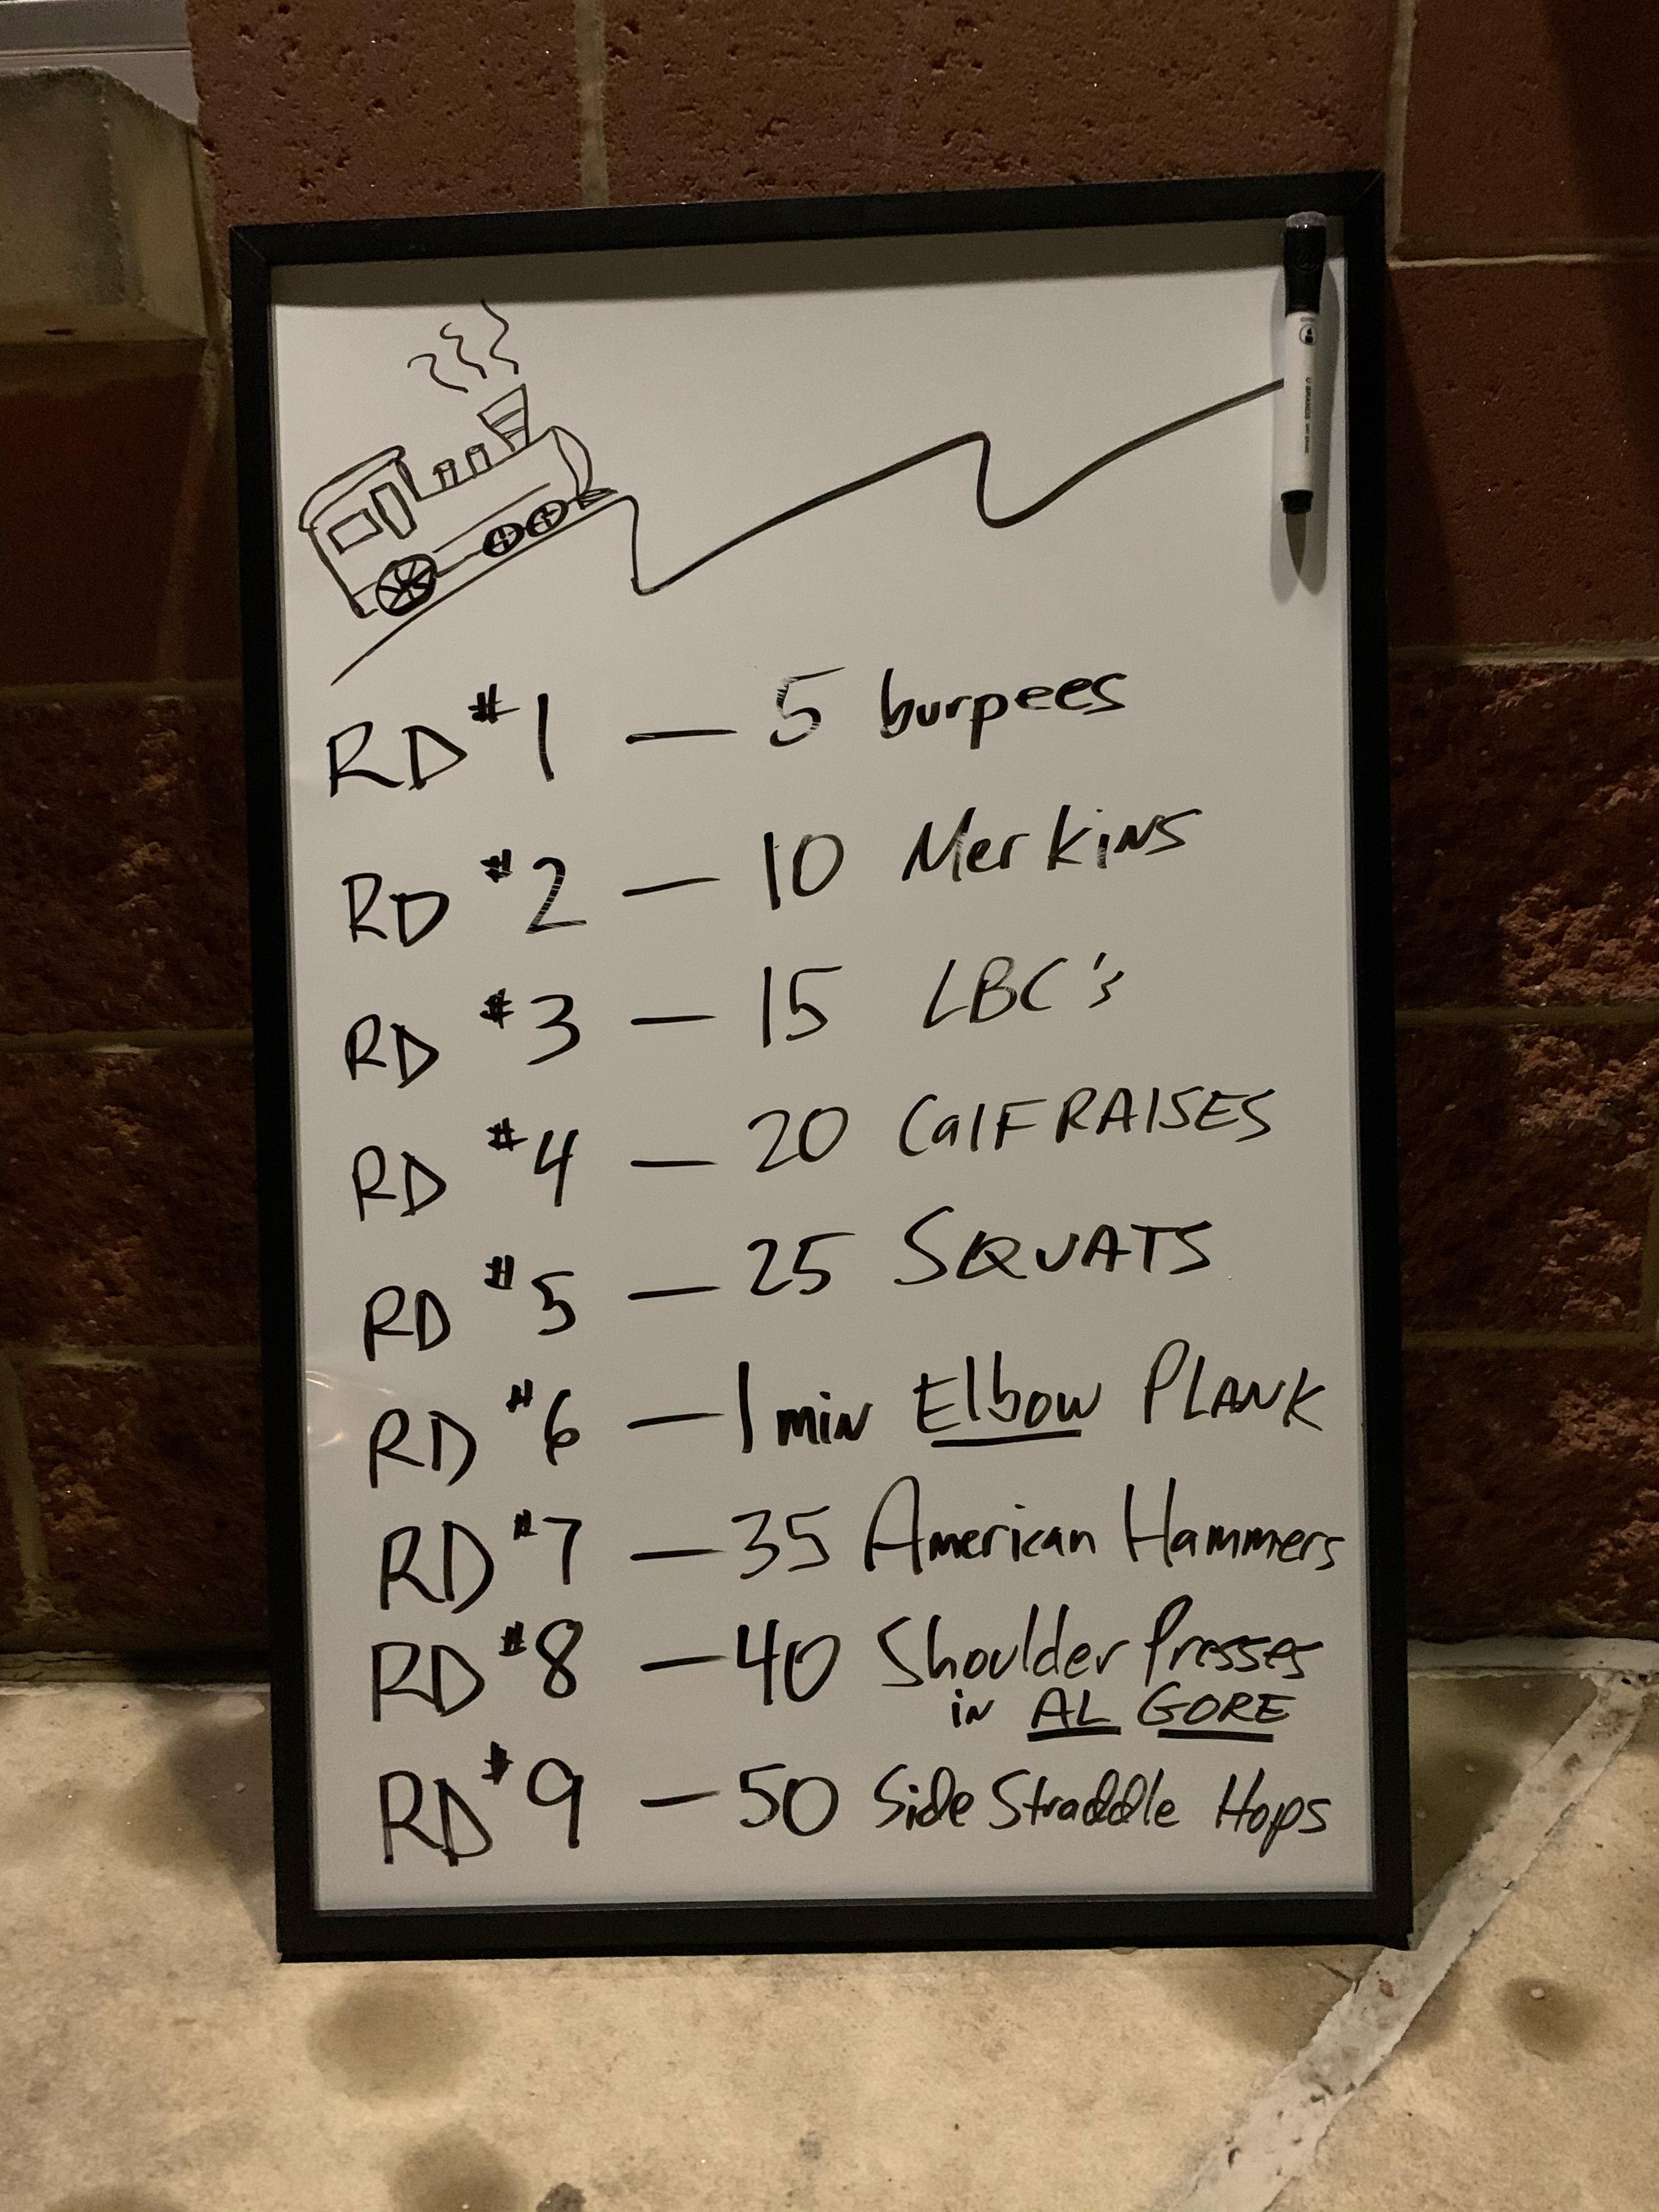 RD #1 — 5 burpees
RD #2 — 10 Merkins
RD #3 — 15 LBC's
RD #4 — 20 Calf RAISES
RD #5 — 25 SQUATS
RD #6 — 1 min Elbow PLANK
RD #7 — 35 American Hammers
RD #8 — 40 Shoulder Presses
in AL GORE
RD #9 — 50 Side Straddle Hops